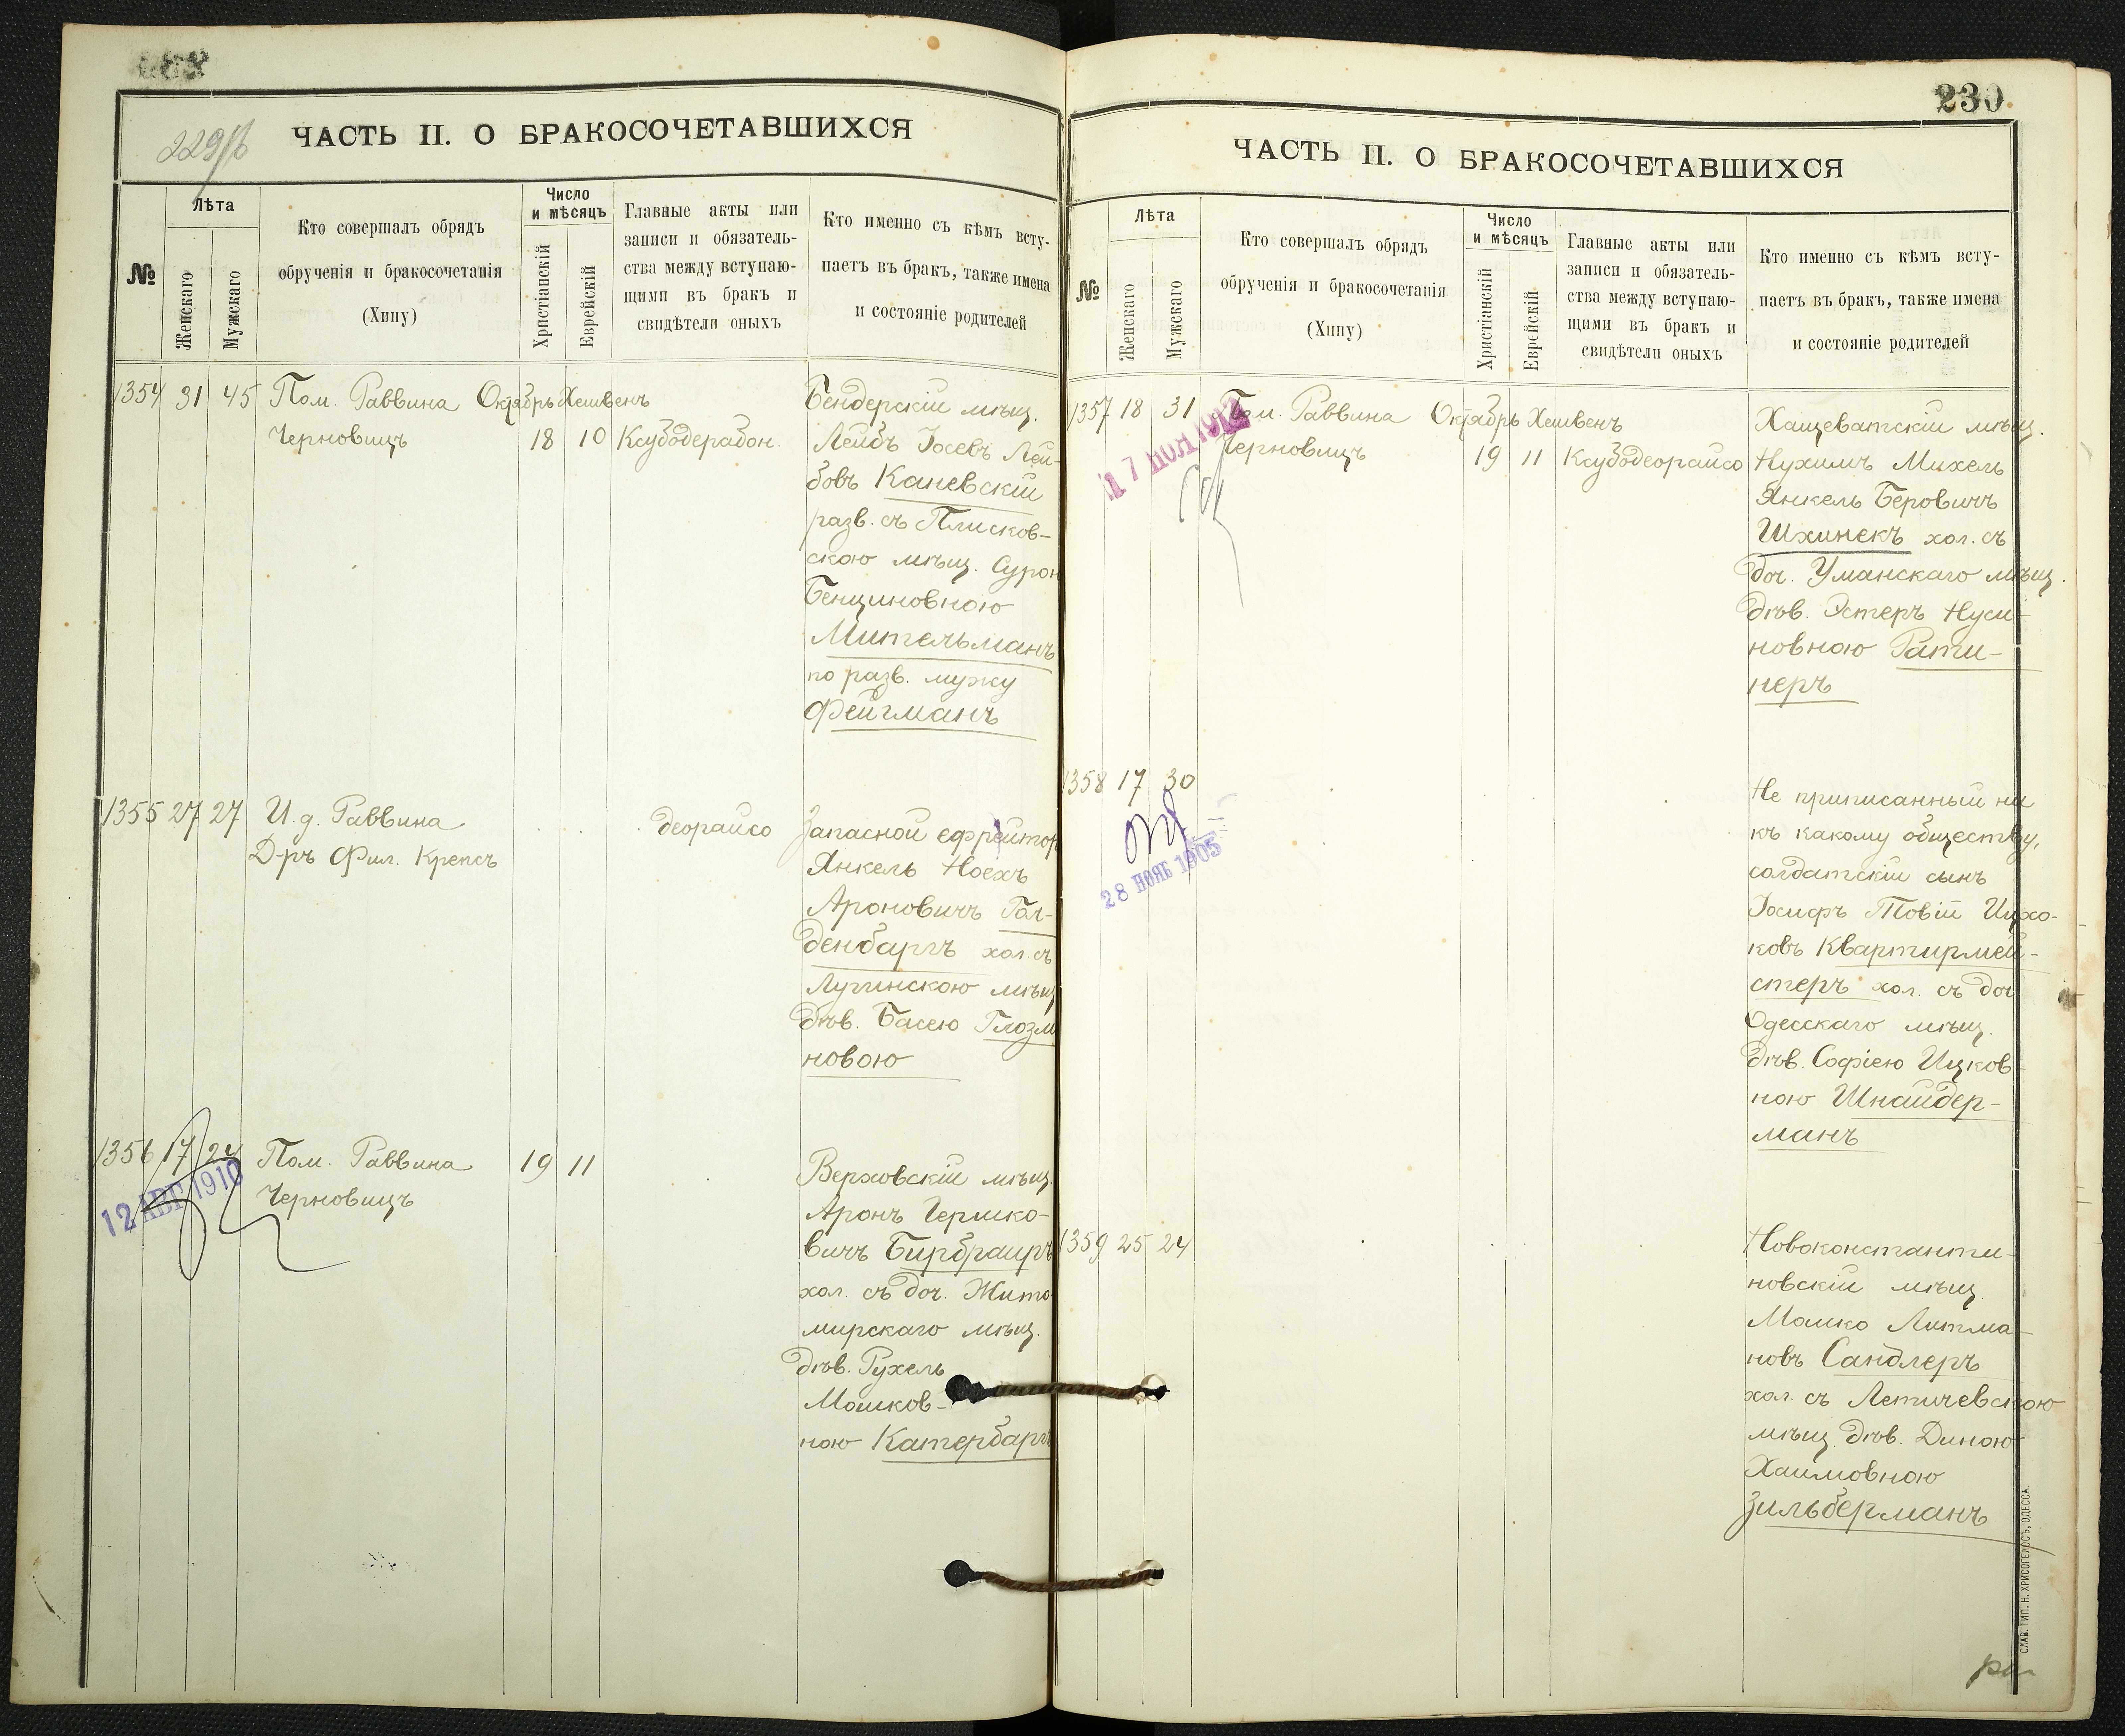 229/б
ЧАСТЬ II. О БРАКОСОЧЕТАВШИХСЯ
№
Лѣта
Женскаго
Мужскаго
Кто совершалъ обрядъ
обрученія и бракосочетанія
(Хипу)
Число
и мѣсяцъ
Христіанскій
Еврейскій
Главные акты или
записи и обязатель-
ства между вступаю-
щими въ бракъ и
свидѣтели оныхъ
Кто именно съ кѣмъ всту-
паетъ въ бракъ, также имена
и состояніе родителей
1354 31 45 Пом. Раввина Октябрь Хешвенъ
Черновицъ 18 10 Ксубодерабон.
Бендерскій мѣщ.
Лейбъ Іосевъ Лей-
бовъ Каневскій
разв. съ Плисков-
скою мѣщ. Сурой
Бенциновною
Мительманъ
по разв. мужу
Фейгманъ
1355 27 27 И. д. Раввина
Д-ръ Фил. Крепсъ
деорайсо
Запасной ефрейтор
Янкель Ноехъ
Ароновичъ Гол-
денбаргъ хол. съ
Лугинскою мѣщ
дѣв. Басею Глозм
новою
1356 17 24 Пом. Раввина 19 11
Черновицъ
12 АВГ 1910
Верховскій мѣщ.
Аронъ Гершко-
вичъ Бирбраиръ
хол. съ доч. Жито
мирскаго мѣщ.
дѣв. Рухель
Мошков-
ною Катербаргъ
230
ЧАСТЬ II. О БРАКОСОЧЕТАВШИХСЯ
№
Лѣта
Женскаго
Мужскаго
Кто совершалъ обрядъ
обрученія и бракосочетанія
(Хипу)
Число
и мѣсяцъ
Христіанскій
Еврейскій
Главные акты или
записи и обязатель-
ства между вступаю-
щими въ бракъ и
свидѣтели оныхъ
Кто именно съ кѣмъ всту-
паетъ въ бракъ, также имена
и состояніе родителей
1357 18 31 Пом. Раввина Октябрь Хешвенъ
Черновицъ 19 11 Ксубодеорайсо
Хащеватскій мѣщ.
Нухимъ Михель
Янкель Беровичъ
Шхинекъ хол. съ
доч. Уманскаго мѣщ.
дѣв. Эстеръ Нуси-
новною Рати-
неръ
1358 17 30
28 НОЯБ 1905
Не приписанный ни
къ какому обществу,
солдатскій сынъ
Іосифъ Товій Ицхо-
ковъ Квартирмей-
стеръ хол. съ доч
Одесскаго мѣщ.
дѣв. Софіею Ицков-
ною Шнайдер-
манъ
1359 25 24
Новоконстанти-
новскій мѣщ.
Мошко Литма-
новъ Сандлеръ
хол. съ Летичевскою
мѣщ. дѣв. Диною
Хаимовною
Зильберманъ
СЛАВ. ТИП. Н. ХРИСОГЕЛОСЪ, ОДЕССА.